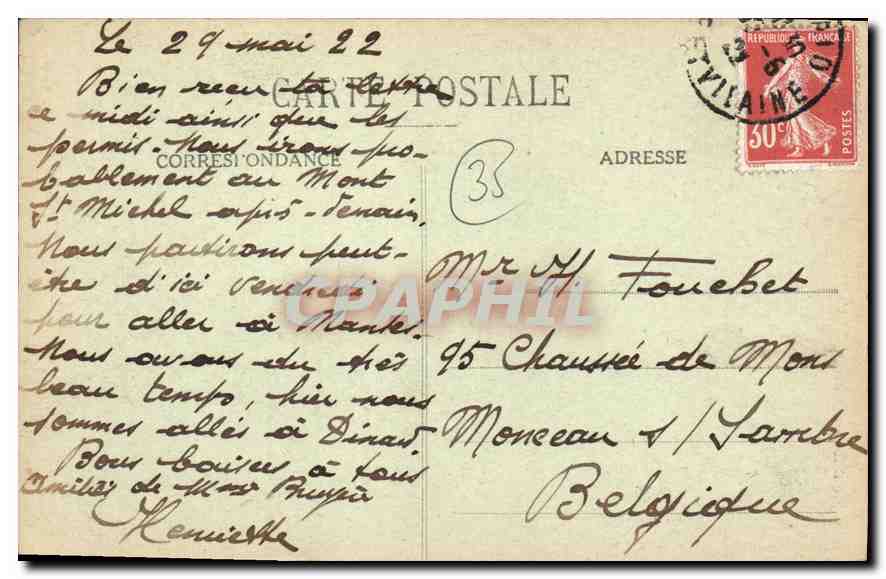 Le 29 mai 22
Bien reçu ta lettre
ce midi ainsi que les
permis. Nous irons pro-
bablement au Mont
St Michel après-demain.
Nous partirons peut-
être d'ici vendredi
pour aller à Nantes.
Nous avons du très
beau temps, hier nous
sommes allés à Dinard
Bons baisers à tous
Amitiés de Mme
Henriette
CARTE POSTALE
CORRESPONDANCE
ADRESSE
35
Mr H Fouchet
95 Chaussée de Mons
Monceau s/ Sambre
Belgique
RÉPUBLIQUE FRANÇAISE
30c
POSTES
VILAINE
CPAPHIL